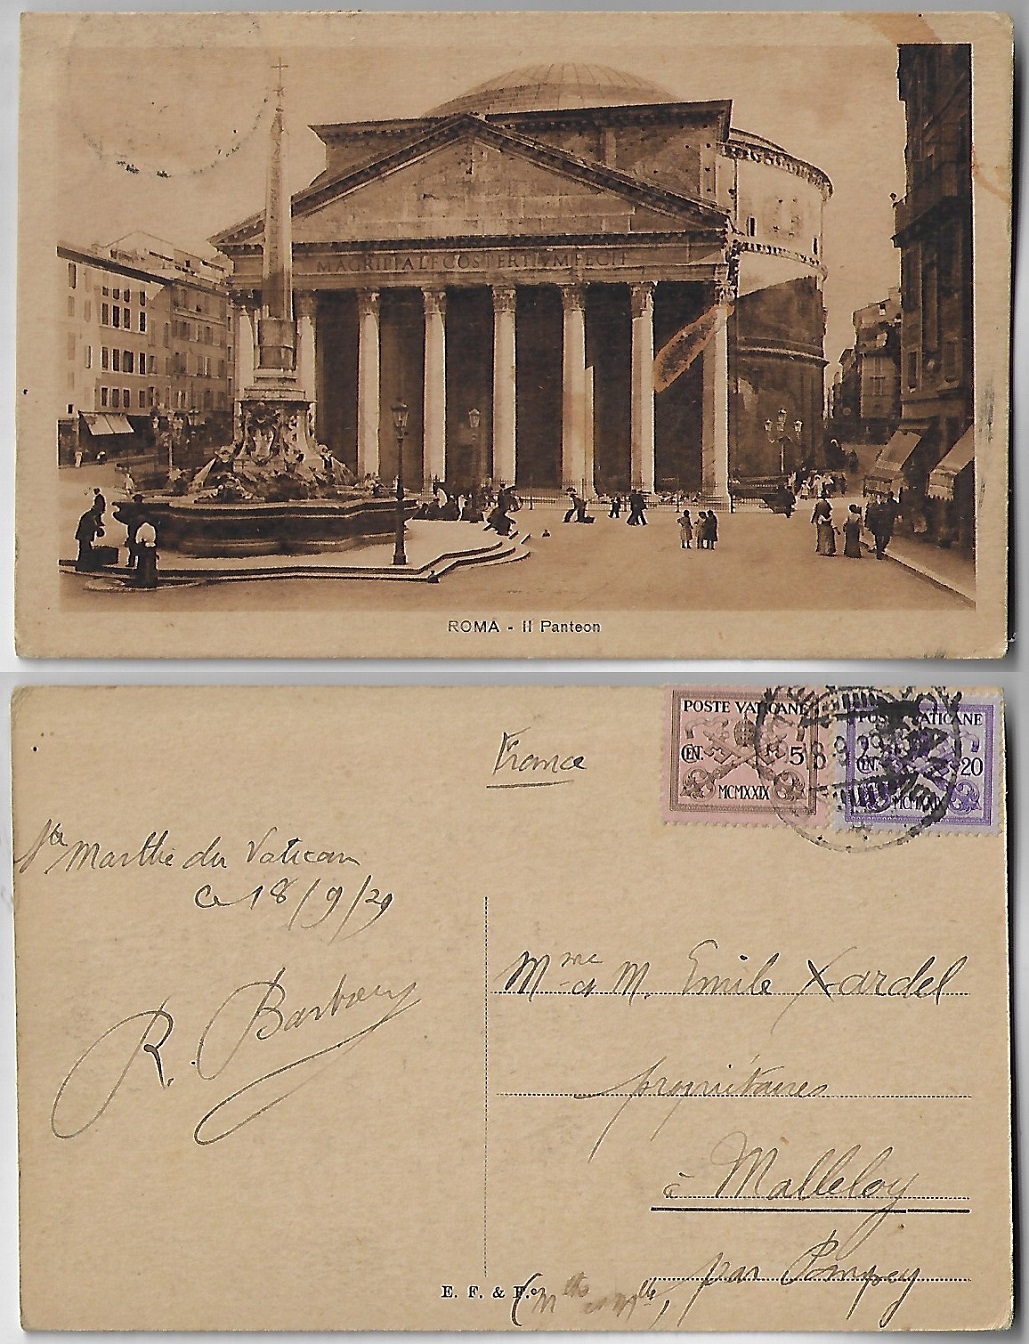 M·AGRIPPA·L·F·COS·TERTIVM·FECIT
ROMA - Il Panteon
POSTE VATICANE
CEN. 5
MCMXXIX
POSTE VATICANE
CEN. 20
MCMXXIX
18-9 29
France
Ste Marthe du Vatican
ce 18/9/29
R.
Mme & M. Emile Xardel
propriétaires
à Malleloy
par Pompey
(Mthe et Mlle)
E. F. & F.º